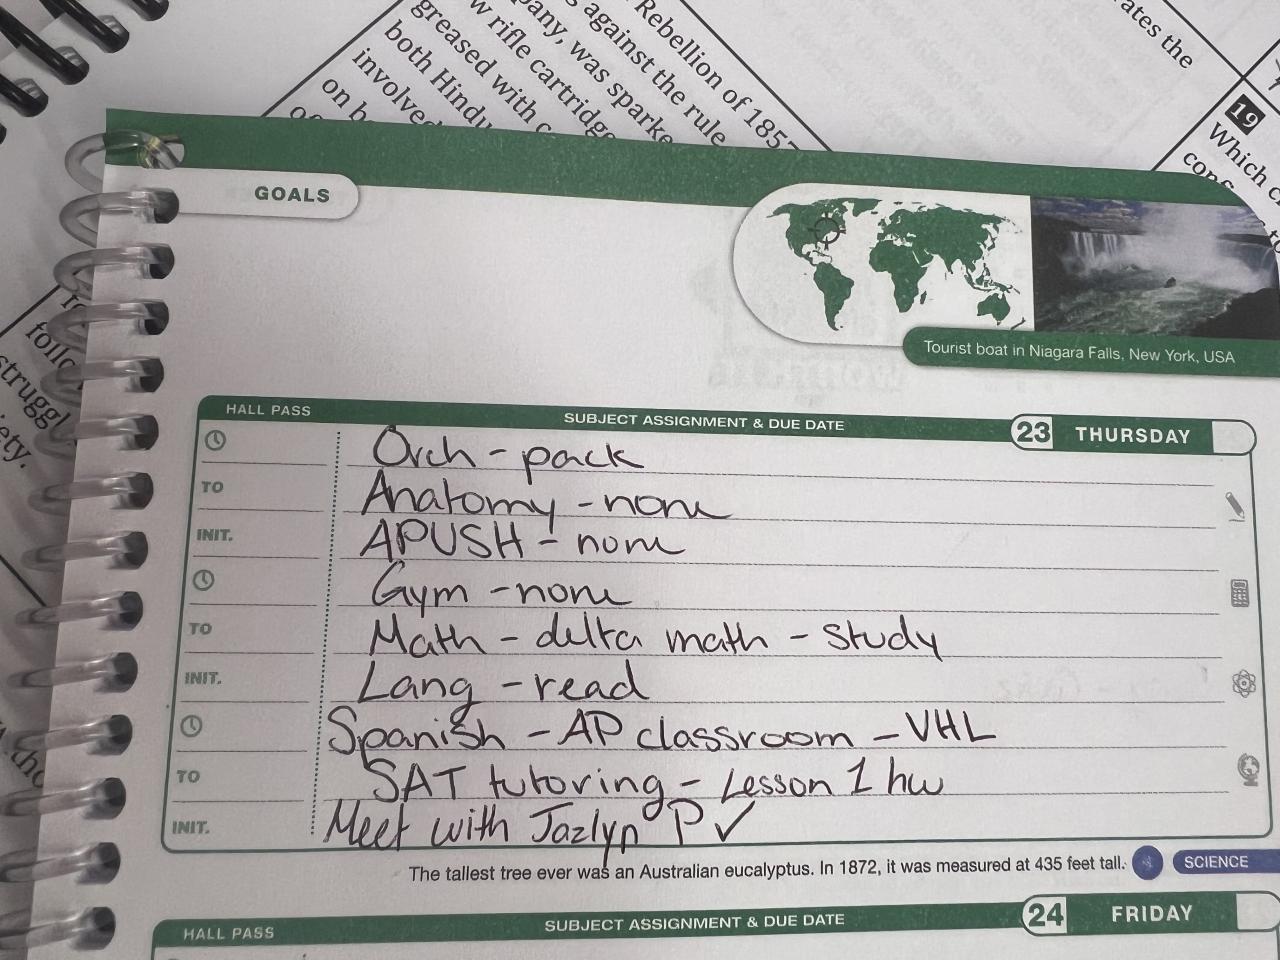 Rebellion of 1857
against the rule
pany, was sparke
w rifle cartridge
greased with c
both Hindu
involve
on b
ates the
19
Which c
follo
struggl
iety.
GOALS
Tourist boat in Niagara Falls, New York, USA
HALL PASS SUBJECT ASSIGNMENT & DUE DATE 23 THURSDAY
Orch - pack
TO Anatomy - none
INIT. APUSH - none
Gym - none
TO Math - delta math - study
INIT. Lang - read
Spanish - AP classroom - VHL
TO SAT tutoring - Lesson 1 hw
INIT. Meet with Jazlyn P ✓
The tallest tree ever was an Australian eucalyptus. In 1872, it was measured at 435 feet tall. SCIENCE
HALL PASS SUBJECT ASSIGNMENT & DUE DATE 24 FRIDAY